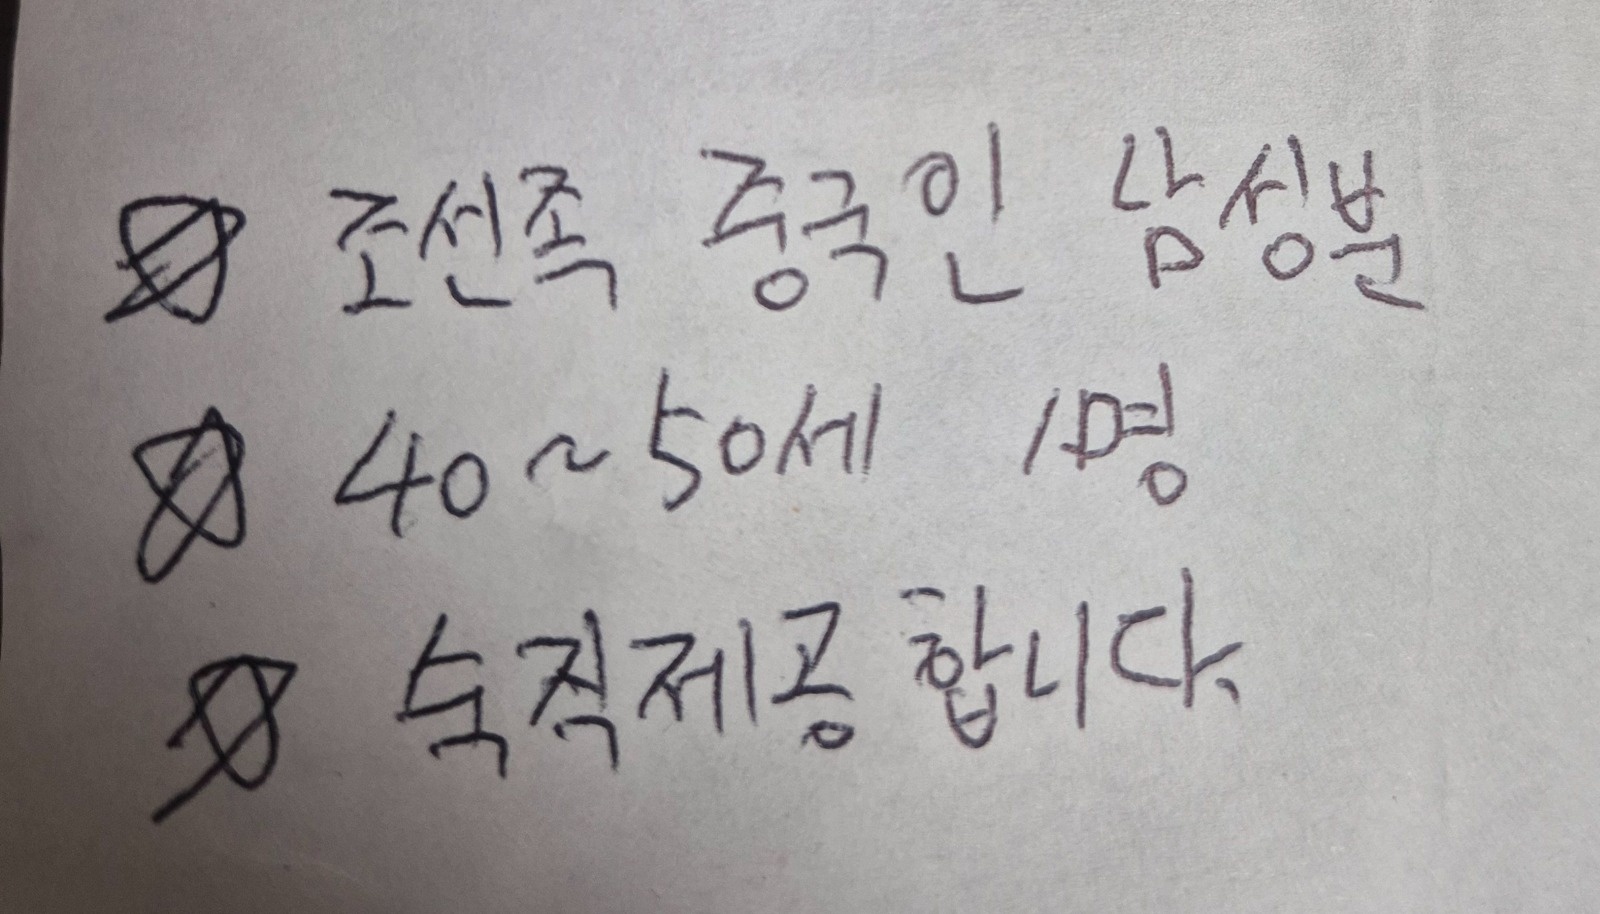 ☆ 조선족 중국인 남성분
☆ 40~50세 1명
☆ 숙직제공합니다.